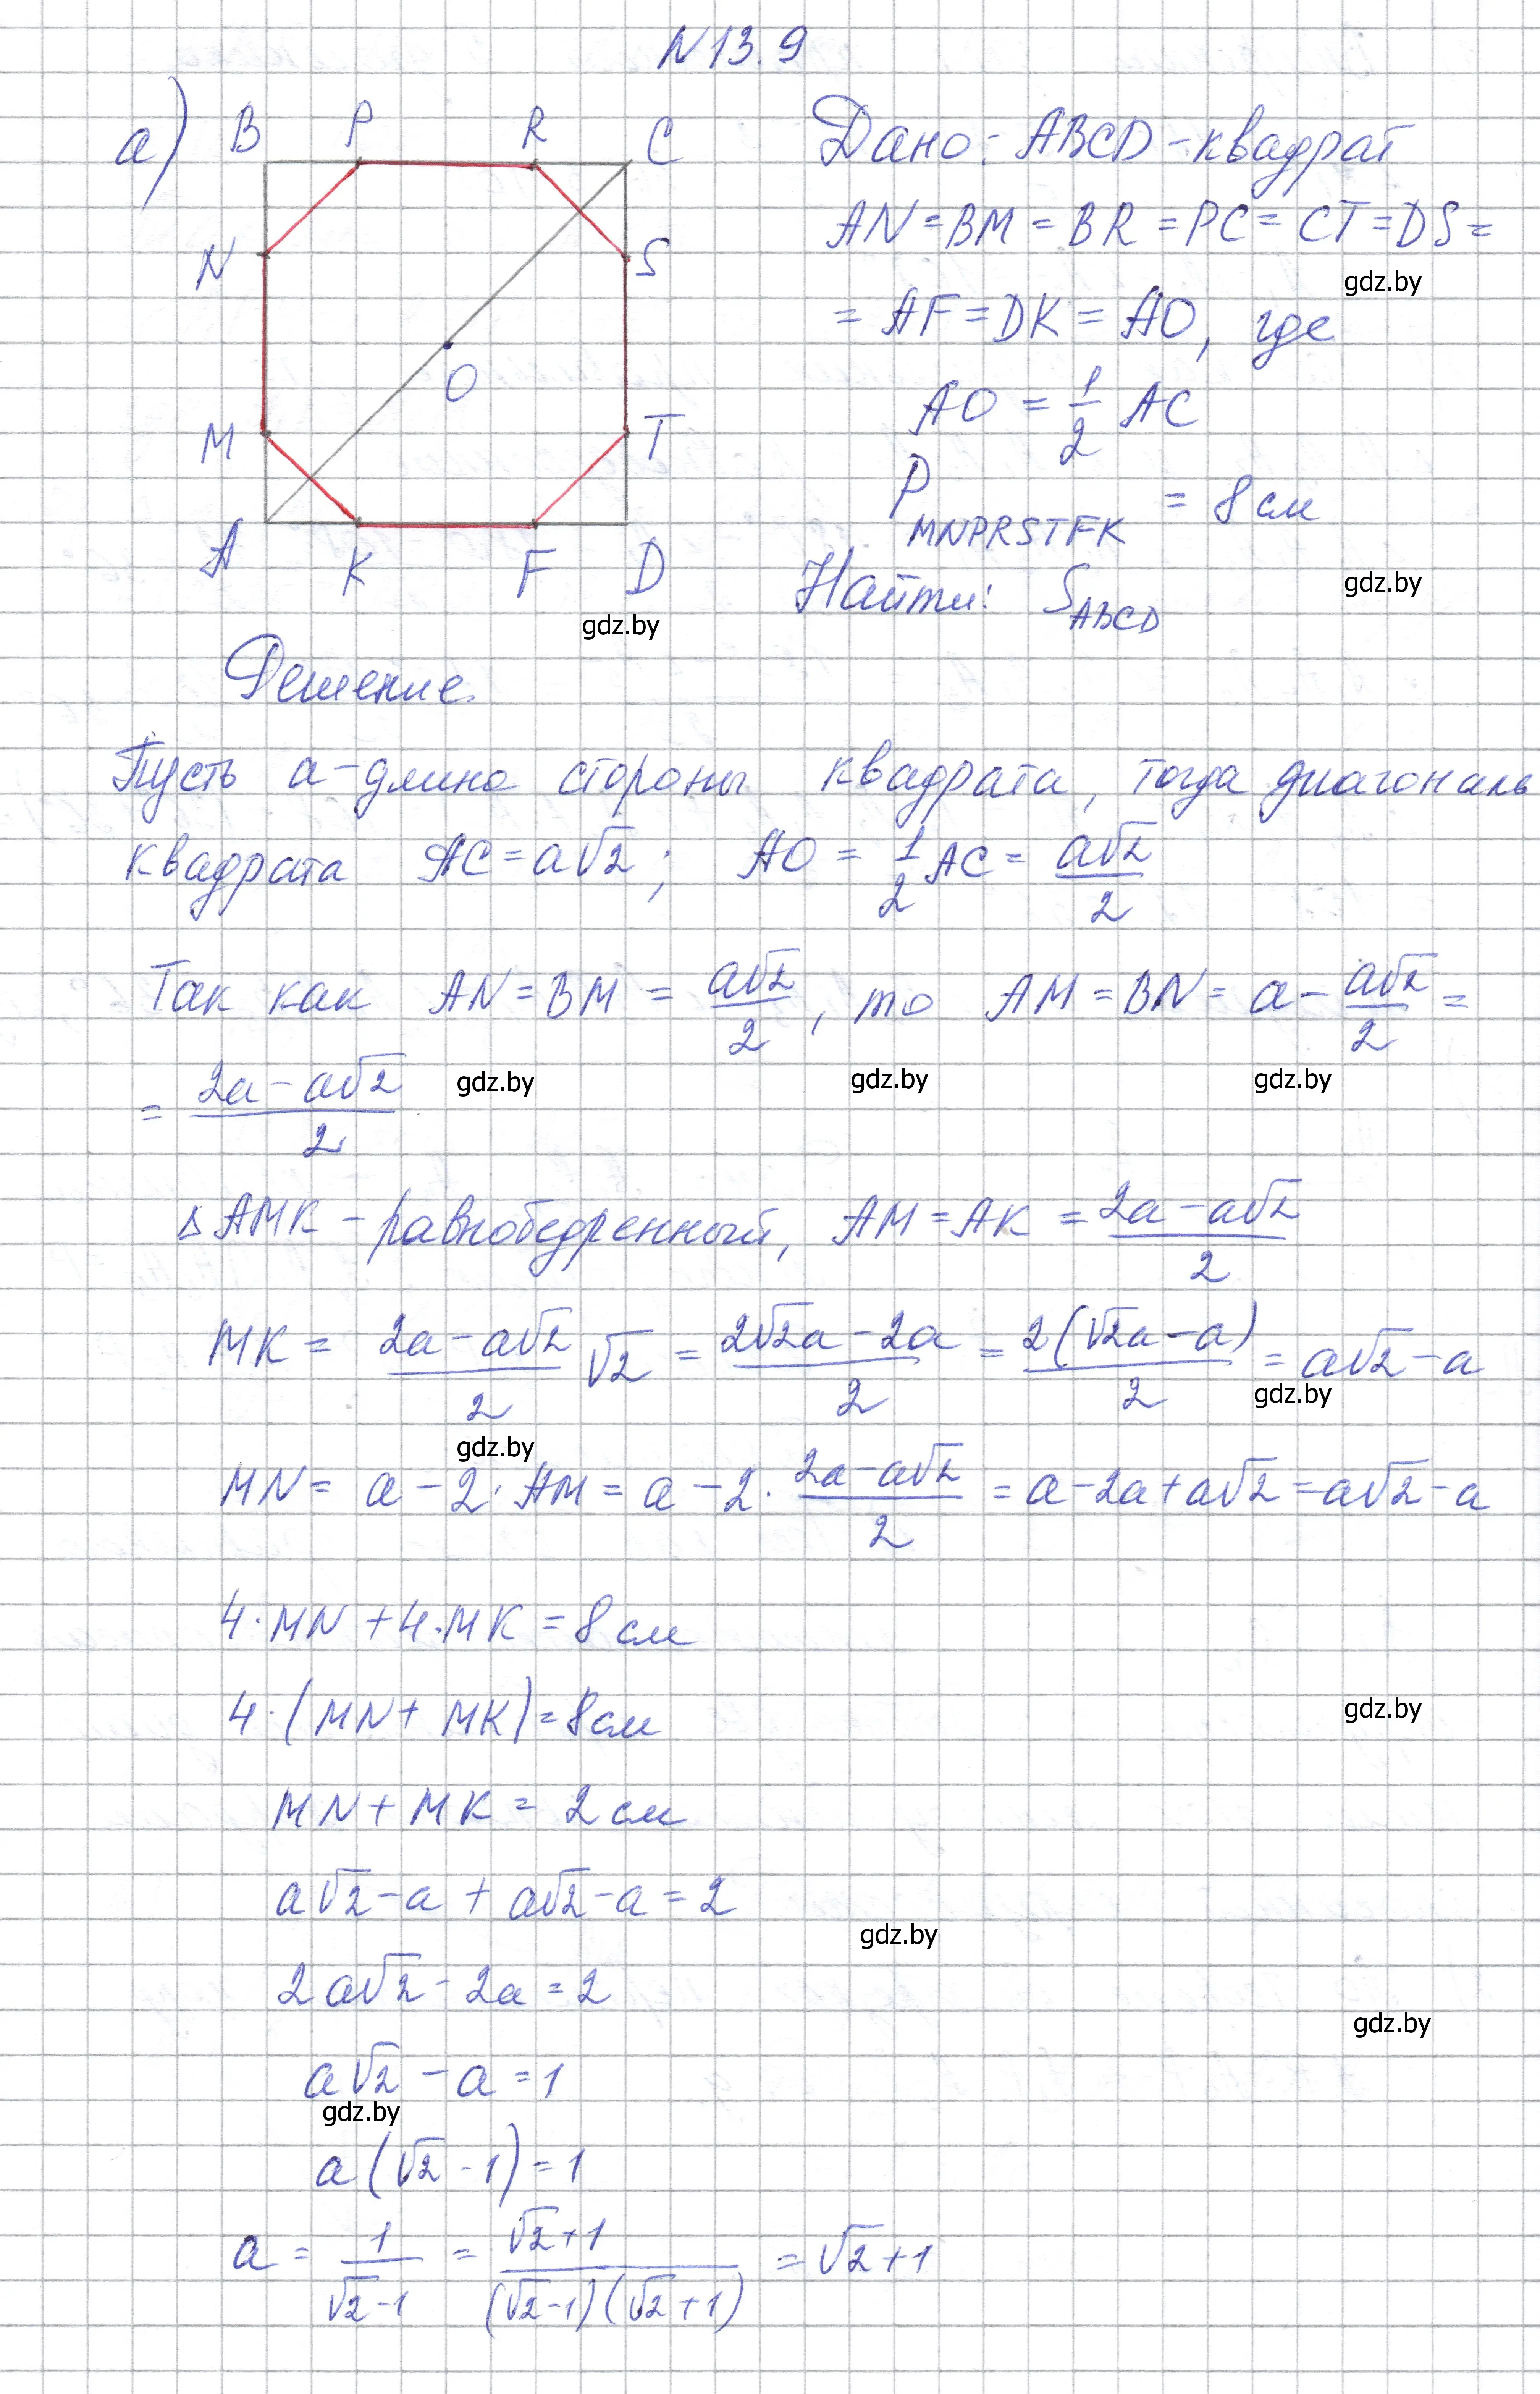 N13.9
а) B P R C
N S
O
M T
A K F D
Дано: ABCD-квадрат
AN = BM = BR = PC = CT = DS =
gdz.by
= AF = DK = AO, где
AO = 1/2 AC
P MNPRSTFK = 8 см
Найти: S ABCD
gdz.by
gdz.by
Решение.
Пусть a-длина стороны квадрата, тогда диагональ
квадрата AC = a√2; AO = 1/2 AC = a√2/2
Так как AN = BM = a√2/2, то AM = BN = a - a√2/2 =
= (2a - a√2)/2
gdz.by gdz.by gdz.by
Δ AMK - равнобедренный, AM = AK = (2a - a√2)/2
MK = (2a - a√2)/2 √2 = (2√2a - 2a)/2 = 2(√2a - a)/2 = a√2 - a
gdz.by
gdz.by
MN = a - 2·AM = a - 2·(2a - a√2)/2 = a - 2a + a√2 = a√2 - a
4·MN + 4·MK = 8 см
4·(MN + MK) = 8 см
gdz.by
MN + MK = 2 см
a√2 - a + a√2 - a = 2
gdz.by
2a√2 - 2a = 2
gdz.by
a√2 - a = 1
gdz.by
a(√2 - 1) = 1
a = 1/(√2 - 1) = (√2 + 1)/((√2 - 1)(√2 + 1)) = √2 + 1